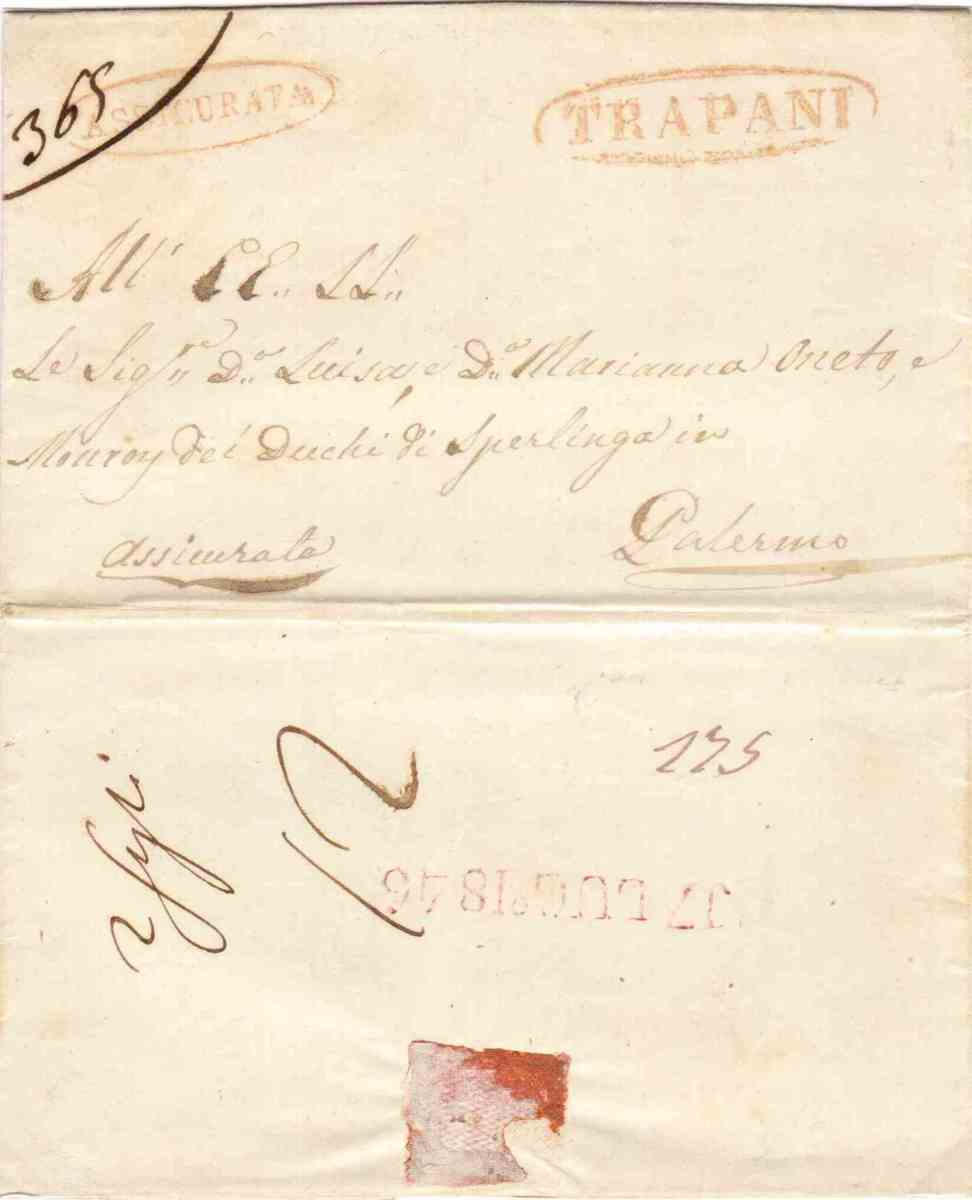 365
ASSICURATA
TRAPANI
All' EE.. LL..
Le Sig.re D.a Luisa, e D.a Marianna Oneto, e
Monroy dei Duchi di Sperlinga in
assicurata
Palermo
2 fogli
12
175
17 LUG 1846